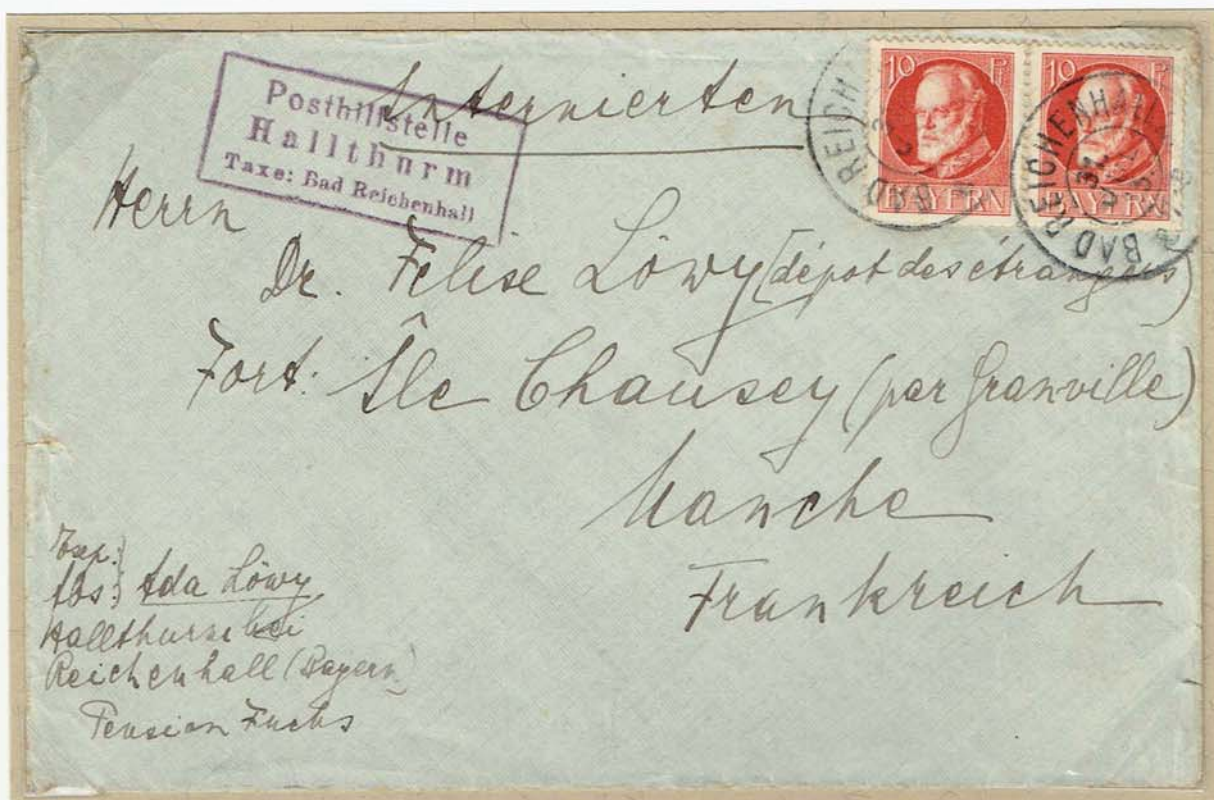 Internierten
Posthilfstelle
Hallthurm
Taxe: Bad Reichenhall
10 Pf
BAYERN
BAD REICH
10 Pf
BAYERN
BAD REICHENHALL
Herrn
Dr. Felise Löwy (dépot des étrangers)
Fort: Île Chausey (par Granville)
Manche
Frankreich
Exp:
Abs: Ada Löwy
Hallthurm bei
Reichenhall (Bayern)
Pension Fuchs